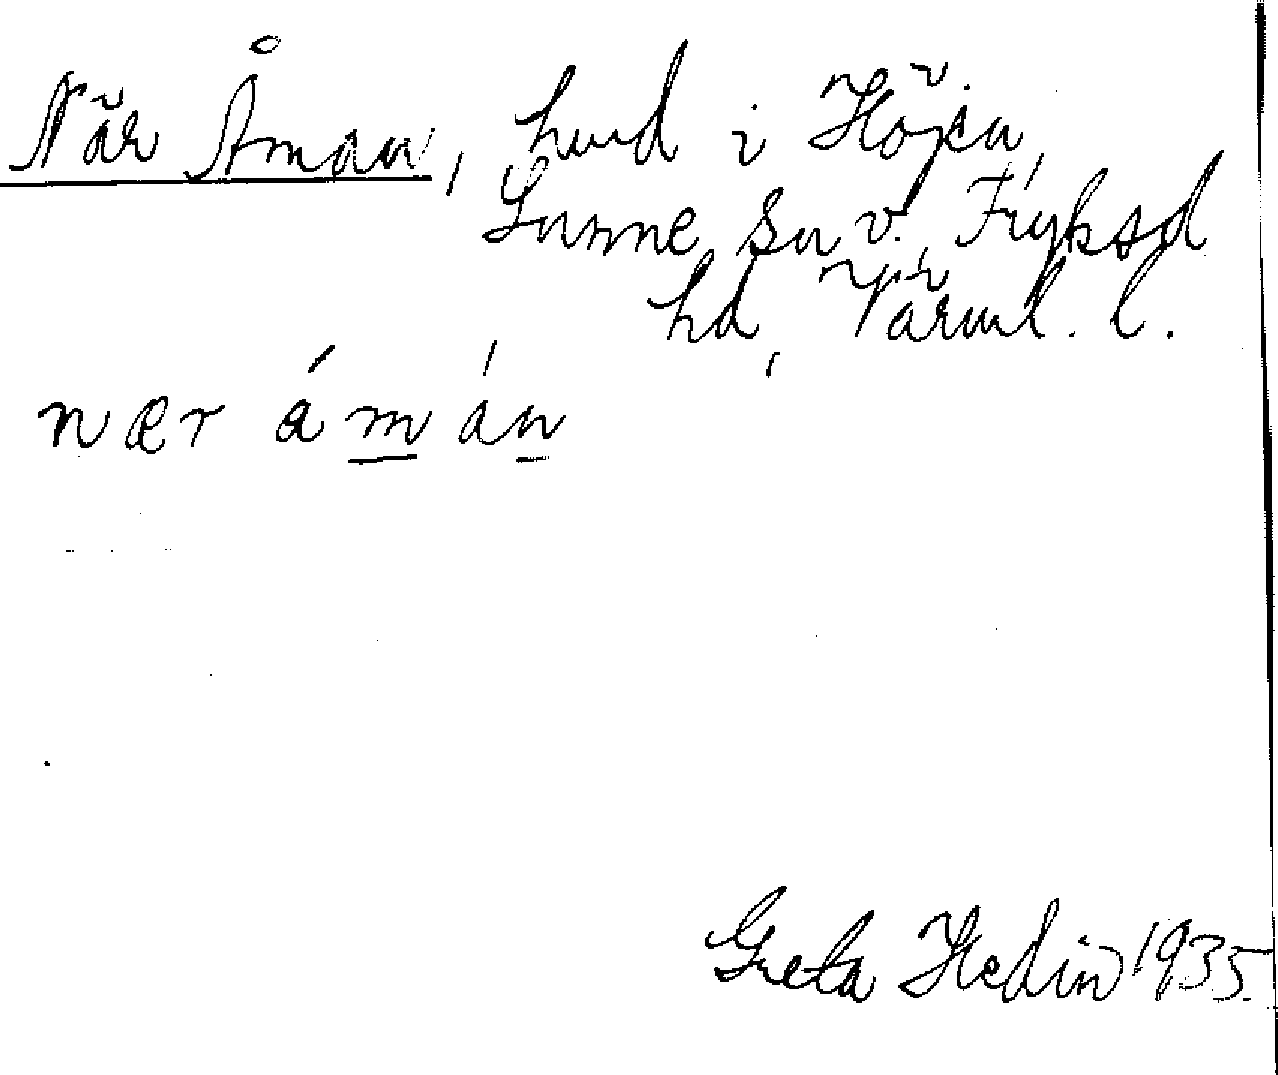 När Åman, hmd i Höjen,
Sunne sn v. Fryksd
hd, Värml. l.
nær ámán
Greta Hedin 1935.